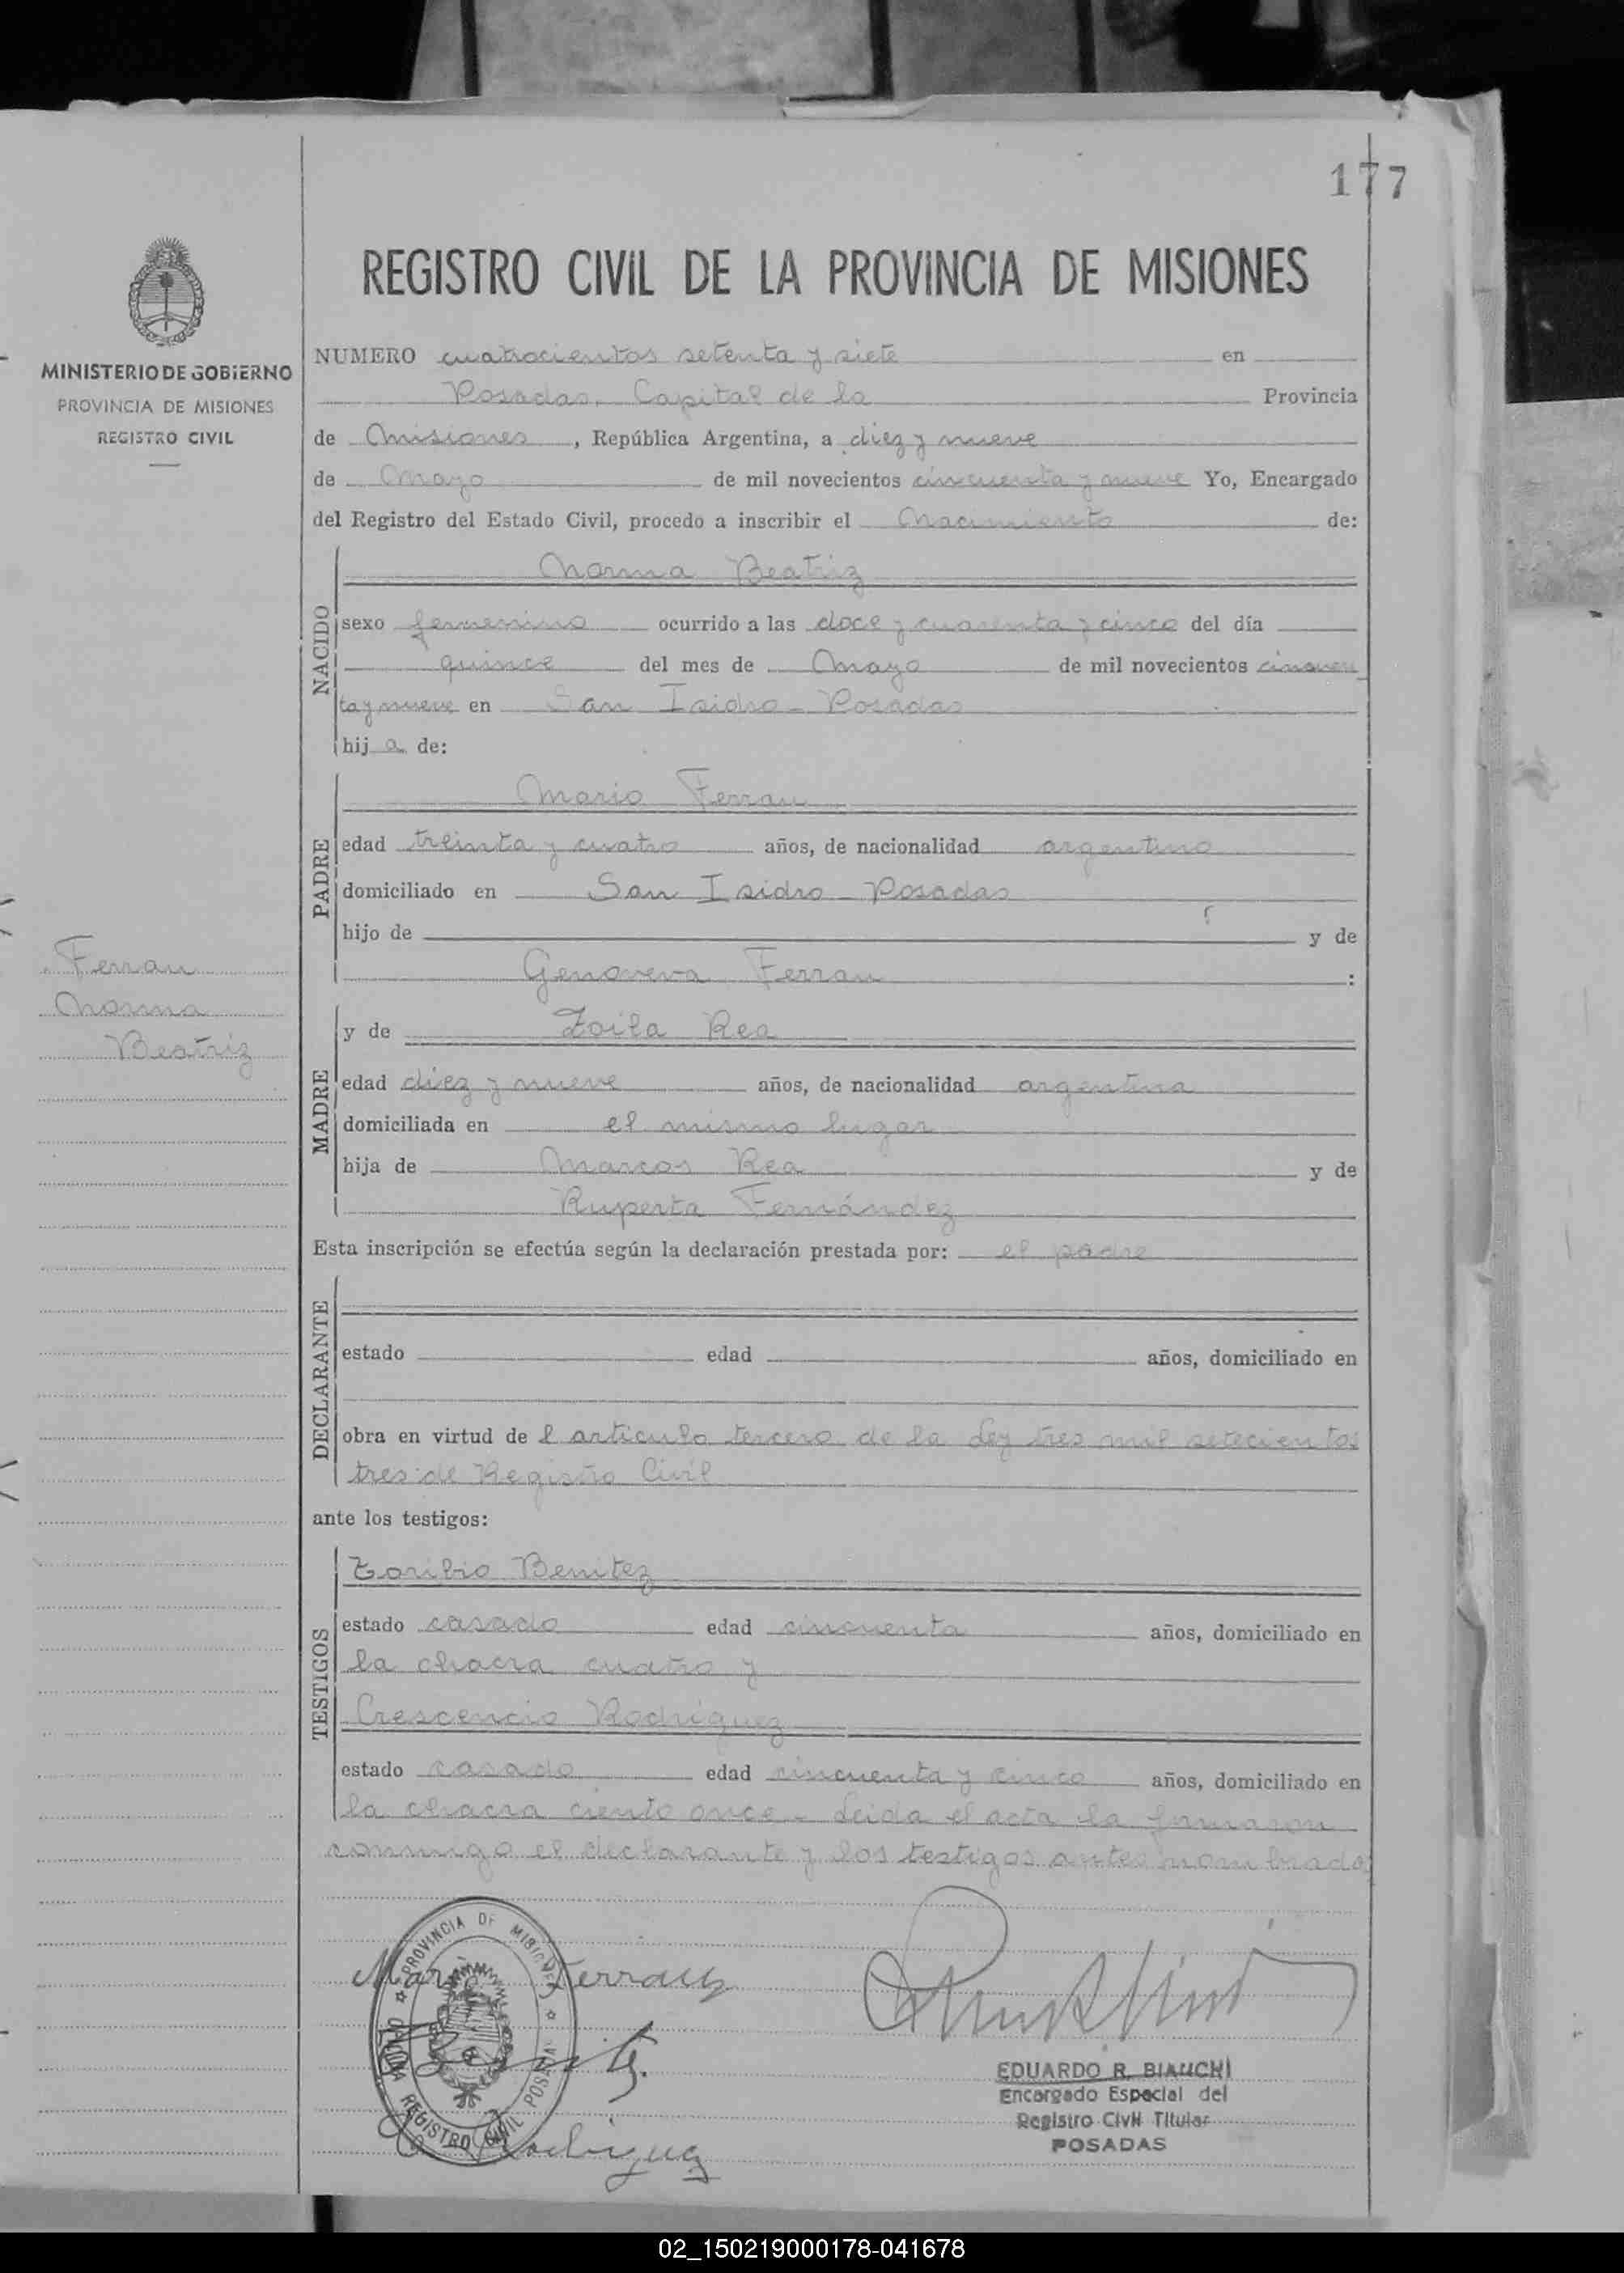 177
MINISTERIO DE GOBIERNO
PROVINCIA DE MISIONES
REGISTRO CIVIL
Ferrau
Norma
Beatriz
REGISTRO CIVIL DE LA PROVINCIA DE MISIONES
NUMERO cuatrocientos setenta y siete en
Posadas, Capital de la Provincia
de Misiones, República Argentina, a diez y nueve
de Mayo de mil novecientos cincuenta y nueve Yo, Encargado
del Registro del Estado Civil, procedo a inscribir el Nacimiento de:
NACIDO
Norma Beatriz
sexo femenino ocurrido a las doce y cuarenta y cinco del día
quince del mes de Mayo de mil novecientos cincuen
ta y nueve en San Isidro - Posadas
hija de:
PADRE
Mario Ferrau
edad treinta y cuatro años, de nacionalidad argentino
domiciliado en San Isidro - Posadas
hijo de y de
Genoveva Ferrau :
MADRE
y de Zoila Rea
edad diez y nueve años, de nacionalidad argentina
domiciliada en el mismo lugar
hija de Marcos Rea y de
Ruperta Fernández
Esta inscripción se efectúa según la declaración prestada por: el padre
DECLARANTE
estado edad años, domiciliado en
obra en virtud de l articulo tercero de la Ley tres mil setecientos
tres de Registro Civil
ante los testigos:
TESTIGOS
Toribio Benitez
estado casado edad cincuenta años, domiciliado en
la chacra cuatro y
Crescencio Rodriguez
estado casado edad cincuenta y cinco años, domiciliado en
la chacra ciento once - Leida el acta la firmaron
conmigo el declarante y los testigos antes nombrados
PROVINCIA DE MISIONES
REGISTRO CIVIL POSADAS
Mario Ferrau
Rodriguez
EDUARDO R. BIANCHI
Encargado Especial del
Registro Civil Titular
POSADAS
02_150219000178-041678